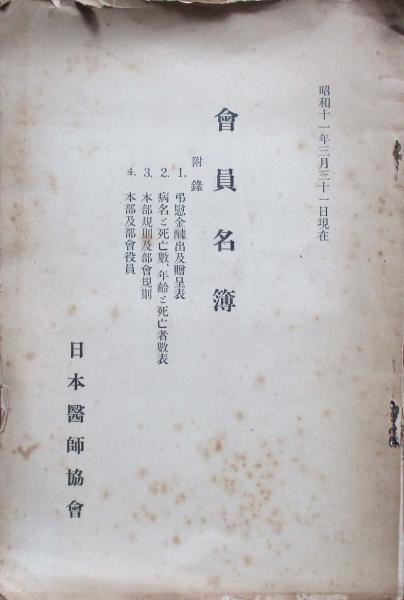 昭和十一年三月三十一日現在
會員名簿
附錄
1. 弔慰金醵出及贈呈表
2. 病名と死亡數、年齡と死亡者數表
3. 本部規則及部會規則
4. 本部及部會役員
日本醫師協會